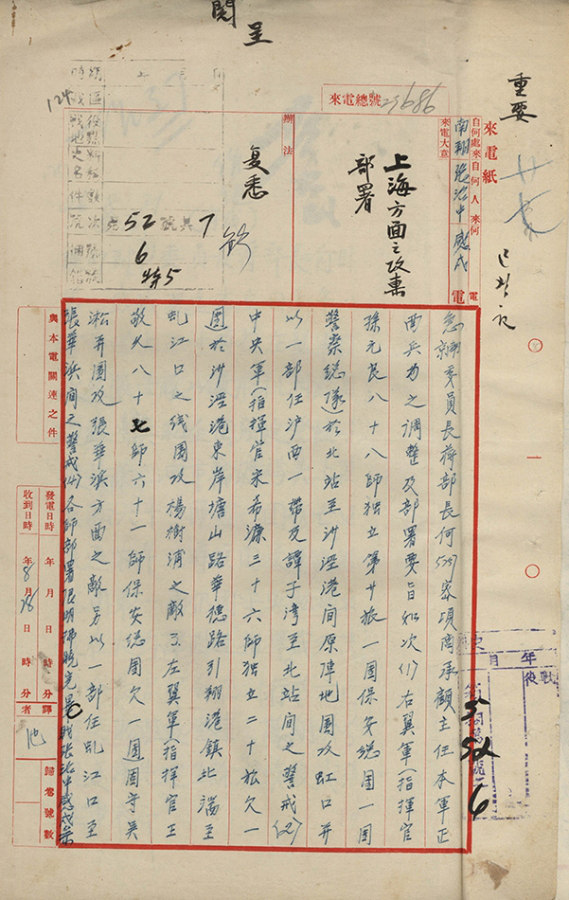 閱
呈
重要
來電紙
自何處來
自何人來
南翔張治中感戌電
來電大意
來電總號 23686
上海方面之攻擊
部署
辦法
复悉
124
52
7
6
特5
急京委員長蔣部長何529密項諄承顧主任本軍正
面兵力之調整及部署要旨如次(1)右翼軍(指揮官
孫元良八十八師獨立第廿旅一團保安總團一團
警察總隊)於北站至沙涇港間原陣地圍攻虹口并
以一部任沪西一帶及譚子湾至北站間之警戒(2)
中央軍(指揮官宋希濂三十六師獨立二十旅欠一
團於沙涇港東岸塘山路華德路引翔港鎮北端至
虬江口之线圍攻楊樹浦之敵3左翼軍(指揮官王
敬久八十七師六十一師保安總團欠一團固守吳
淞并圍攻張華浜方面之敵另以一部任虬江口至
張華浜間之警戒(4)各師部署限明拂曉完畢職張治中感戌
與本電關連之件
發電日時 年 月 日 時 分
收到日時 年 8 月 28 日 時 分
譯者
池
歸卷號數
5
52
6